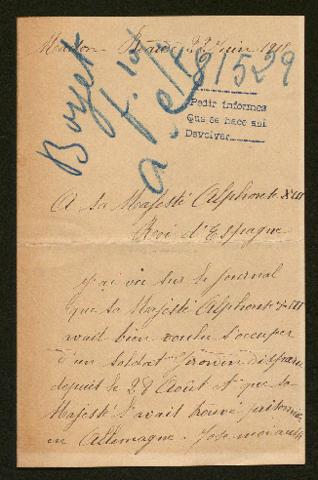 22 Juin 1915
Boyer
81529
Pedir informes
Que se hace así
Devolver
A Sa Majesté Alphonse XIII
Roi d'Espagne
J'ai vu sur le journal
que Sa Majesté Alphonse XIII
avait bien voulu s'occuper
d'un soldat disparu
depuis le 28 Août et que Sa
Majesté l'avait trouvé prisonnier
en Allemagne. J'ose moi aussi